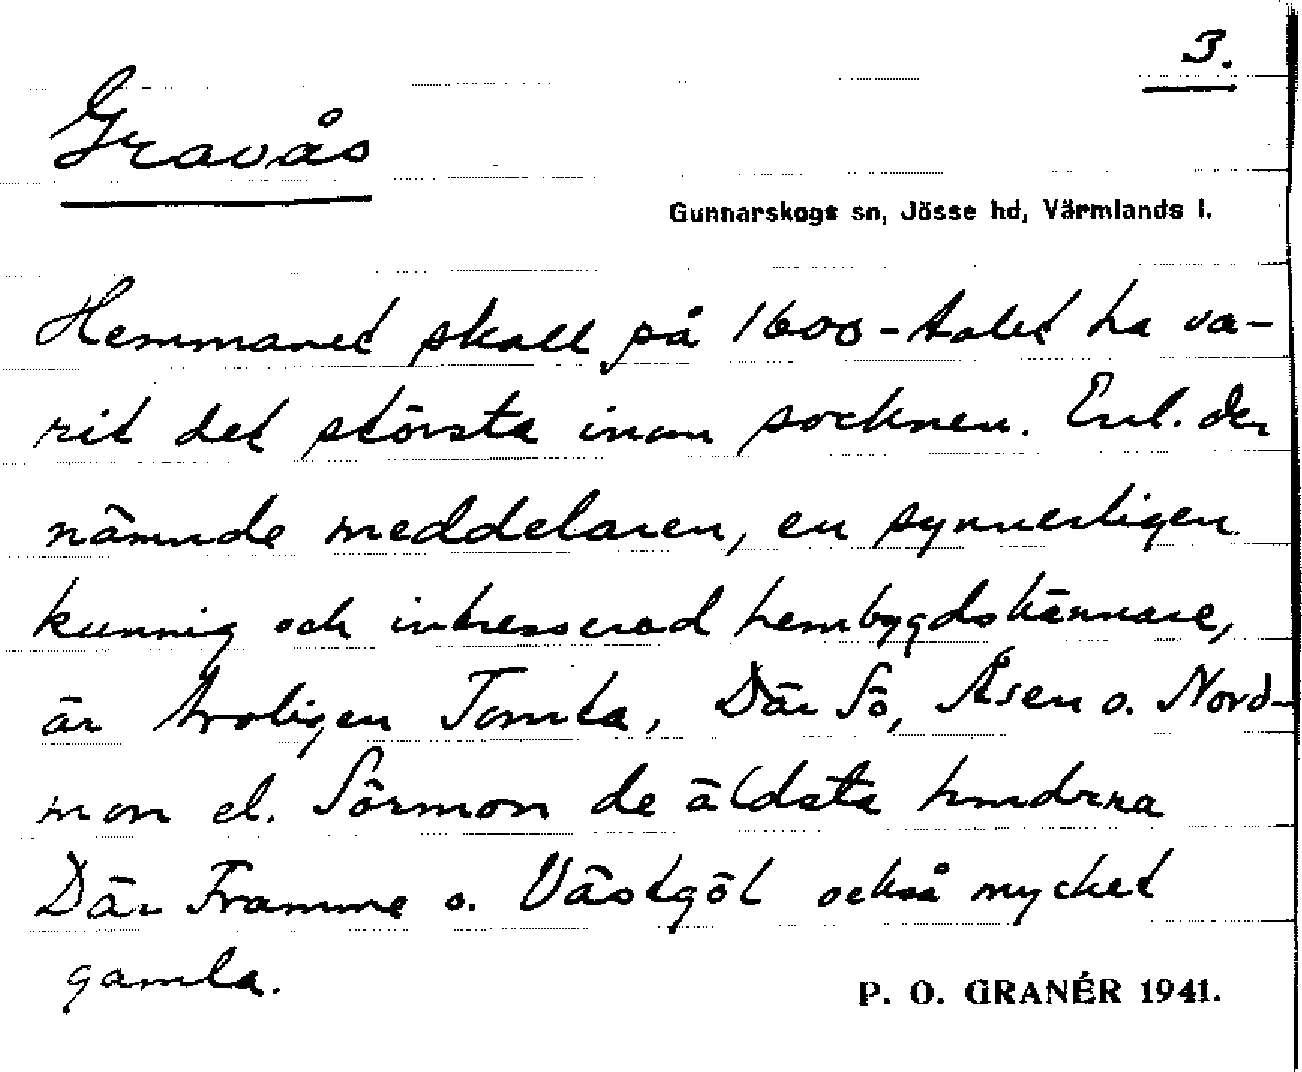 3.
Gravås
Gunnarskogs sn, Jösse hd, Värmlands l.
Hemmanet skall på 1600-talet ha va-
rit det största inom socknen. Enl. den
nämnde meddelaren, en synnerligen
kunnig och intresserad hembygdskännare,
är troligen Tomta, Där Sö, Åsen o. Nord-
mon el. Sörmon de äldsta
Där Framme o. Västgöl också mycket
gamla.
P. O. GRANÉR 1941.